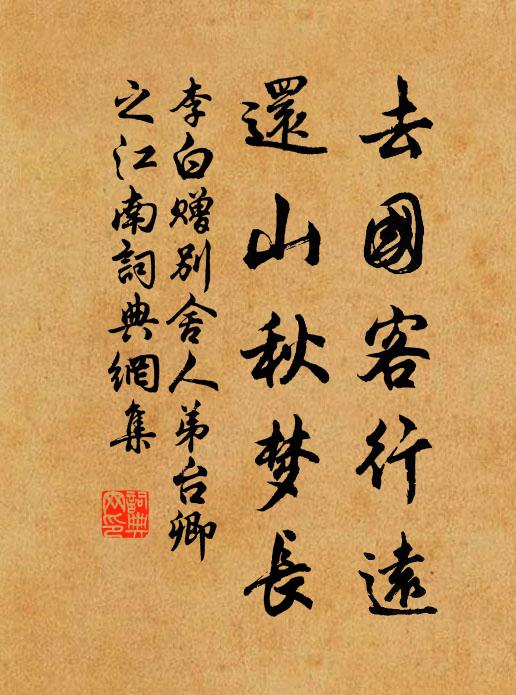 去國客行遠
還山秋梦長
李白赠别舍人弟台卿
之江南詞典網集
詞典網印